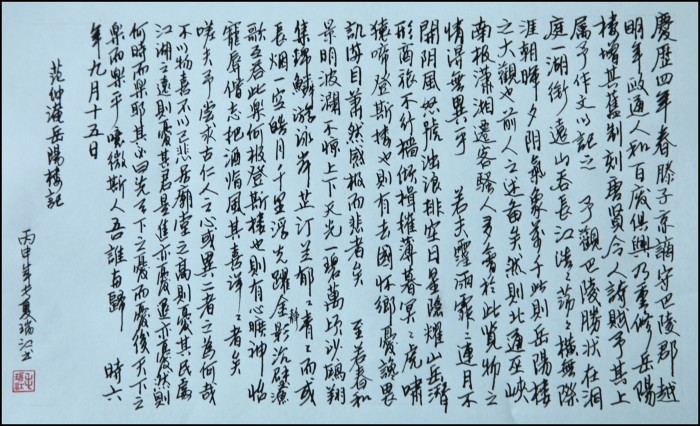 慶歷四年春滕子京謫守巴陵郡越
明年政通人和百廢俱興乃重修岳陽
樓增其舊制刻唐賢今人詩賦于其上
属予作文以記之 予觀巴陵勝状在洞
庭一湖銜遠山吞長江浩浩蕩蕩橫無際
涯朝暉夕阴氣象萬千此則岳陽樓
之大觀也前人之述备矣然則北通巫峡
南极瀟湘遷客騷人多會於此覧物之
情得無異乎 若夫霪雨霏霏連月不
開阴風怒號浊浪排空日星隱耀山岳潛
形商旅不行檣傾楫摧薄暮冥冥虎嘯
猿啼登斯樓也則有去國怀鄉憂讒畏
讥满目蕭然感极而悲者矣 至若春和
景明波瀾不惊上下天光一碧萬顷沙鷗翔
集锦鱗游泳岸芷汀兰郁々青々而或
長烟一空皓月千里浮光躍金静影沉璧漁
歌互答此樂何极登斯樓也則有心曠神怡
寵辱偕忘把酒临風其喜洋々者矣
嗟夫予嘗求古仁人之心或異二者之為何哉
不以物喜不以己悲居廟堂之高則憂其民處
江湖之遠則憂其君是進亦憂退亦憂然則
何時而樂耶其必曰先天下之憂而憂後天下之
樂而樂乎噫微斯人吾誰與歸 時六
年九月十五日
范仲淹岳陽樓記
丙申年夏瑞江書